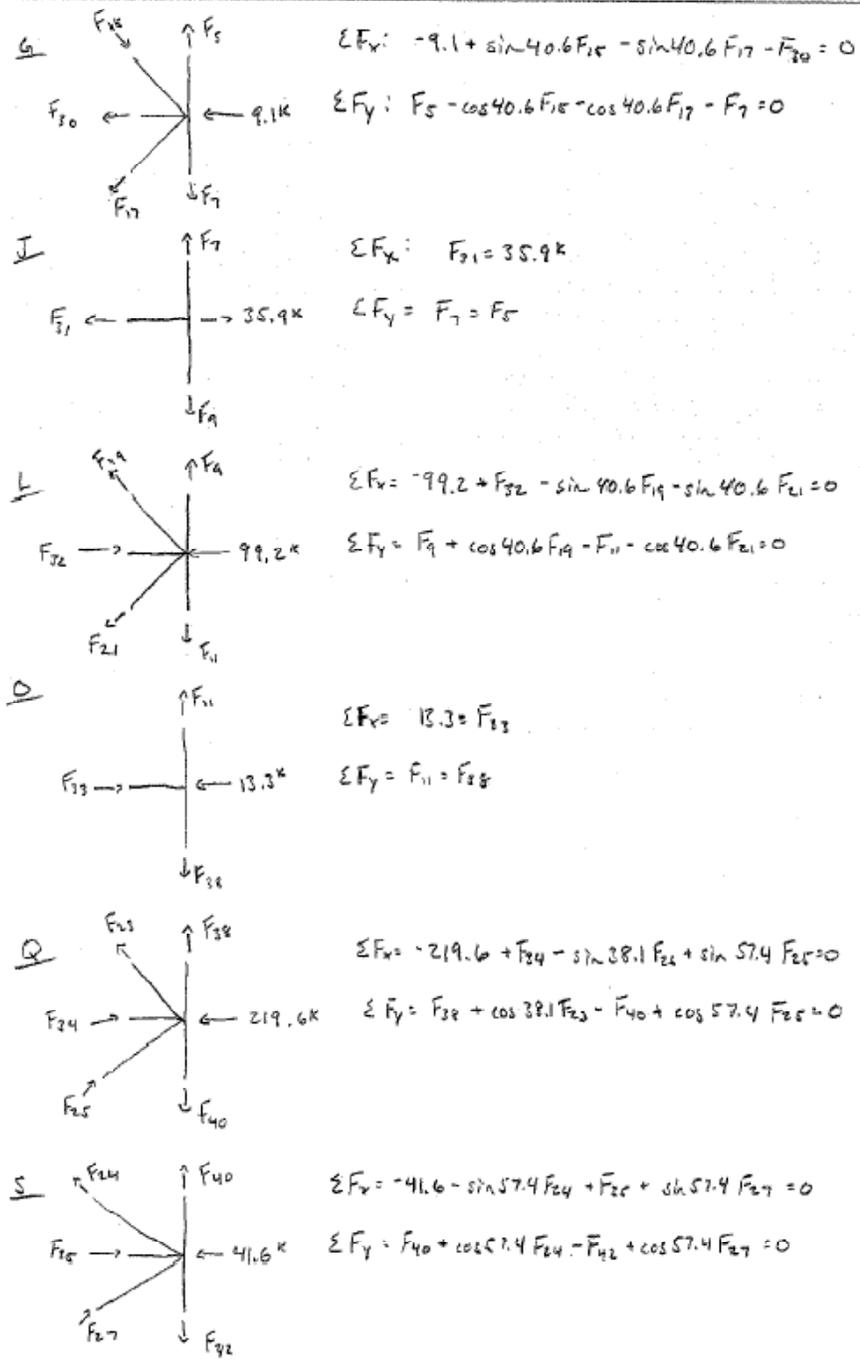 G
F₁₅
F₅
F₃₀
9.1ᴷ
F₁₇
F₇
ΣFx: -9.1 + sin40.6F₁₅ - sin40.6F₁₇ - F₃₀ = 0
ΣFy: F₅ - cos40.6F₁₅ - cos40.6F₁₇ - F₇ = 0
J
F₇
F₃₁
35.9ᴷ
F₉
ΣFx: F₃₁ = 35.9ᴷ
ΣFy = F₇ = F₅
L
F₁₉
F₉
F₃₂
99.2ᴷ
F₂₁
F₁₁
ΣFx = -99.2 + F₃₂ - sin 40.6F₁₉ - sin 40.6 F₂₁ = 0
ΣFy = F₉ + cos40.6F₁₉ - F₁₁ - cos40.6F₂₁ = 0
O
F₁₁
F₃₃
13.3ᴷ
F₃₈
ΣFx = 13.3 = F₃₃
ΣFy = F₁₁ = F₃₈
Q
F₂₃
F₃₈
F₃₄
219.6ᴷ
F₂₅
F₄₀
ΣFx = -219.6 + F₃₄ - sin 38.1 F₂₃ + sin 57.4 F₂₅ = 0
ΣFy = F₃₈ + cos 38.1 F₂₃ - F₄₀ + cos 57.4 F₂₅ = 0
S
F₂₄
F₄₀
F₃₅
41.6ᴷ
F₂₇
F₄₂
ΣFx = -41.6 - sin57.4F₂₄ + F₃₅ + sin 57.4 F₂₇ = 0
ΣFy = F₄₀ + cos57.4 F₂₄ - F₄₂ + cos57.4 F₂₇ = 0